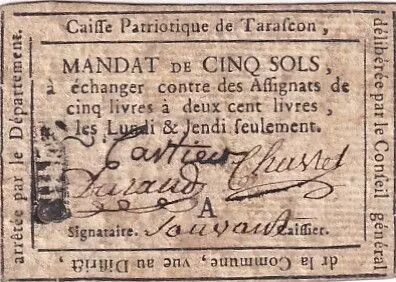 Caisse Patriotique de Tarascon,
délibérée par le Conseil général
de la Commune, vue au District,
arrêtée par le Département.
MANDAT DE CINQ SOLS,
à échanger contre des Assignats de
cinq livres à deux cent livres,
les Lundi & Jendi seulement.
Cartier
Duraud Chustel
A
Signataire. Souvant Caissier.